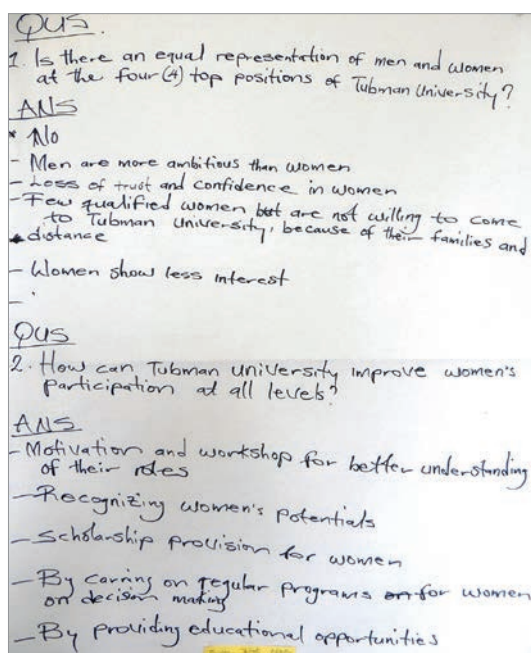 QUS.
1. Is there an equal representation of men and women
at the four (4) top positions of Tubman University?
ANS
* No
- Men are more ambitious than women
- Loss of trust and confidence in women
- Few qualified women but are not willing to come
to Tubman University, because of their families and
distance
- Women show less interest
-
QUS
2. How can Tubman University improve women's
participation at all levels?
ANS
- Motivation and workshop for better understanding
of their roles
- Recognizing women's potentials
- Scholarship provision for women
- By carring on regular programs for women
on decision making
- By providing educational opportunities